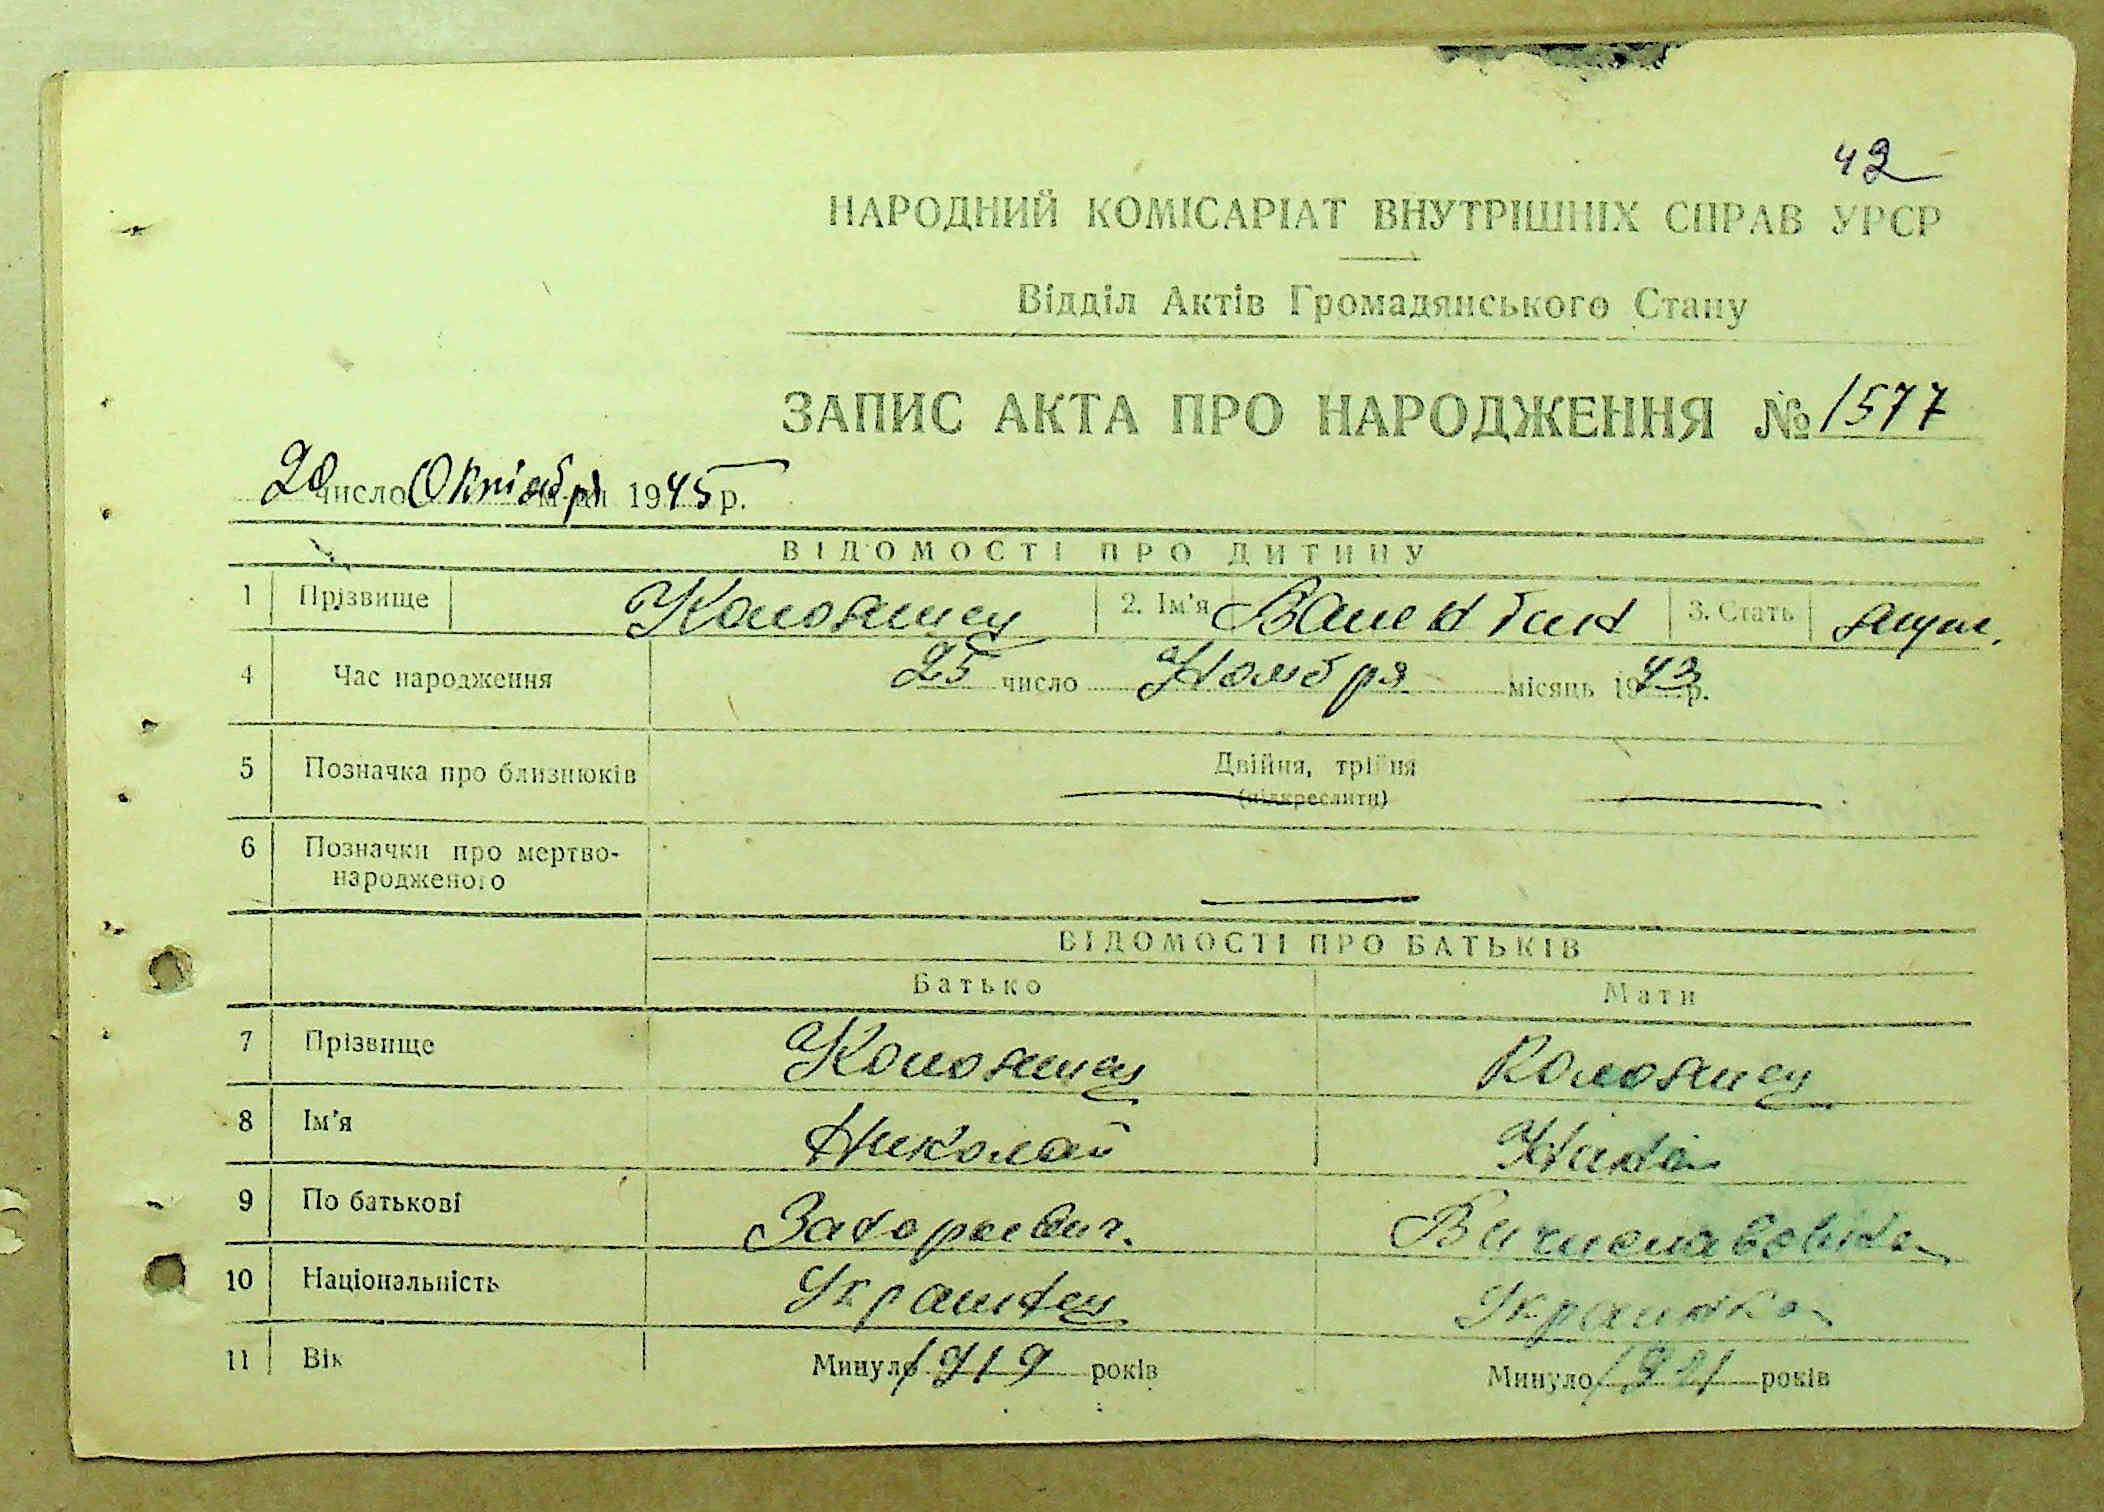 42
НАРОДНИЙ КОМІСАРІАТ ВНУТРІШНІХ СПРАВ УРСР
Відділ Актів Громадянського Стану
ЗАПИС АКТА ПРО НАРОДЖЕННЯ № 1577
28 число Октября м-ця 1945 р.
ВІДОМОСТІ ПРО ДИТИНУ
1 Прізвище Коломиец 2. Ім'я Валентин 3. Стать
4 Час народження 25 число Ноября місяць 1943 р.
5 Позначка про близнюків Двійня, трійня
(підкреслити)
6 Позначки про мертво-
народженого
ВІДОМОСТІ ПРО БАТЬКІВ
Батько Мати
7 Прізвище Коломиец Коломиец
8 Ім'я Николай
9 По батькові
10 Національність Украинец Украинка
11 Вік Минуло 1919 років Минуло 1921 років